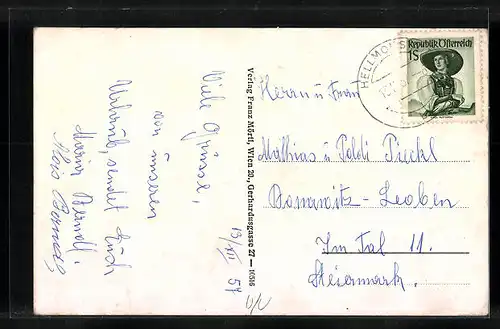 Viele Grüsse,
von unseren
Urlaub, sendet Euch
Maria
Alois
13/VII 57
Verlag Franz Mörtl, Wien 20., Gerhardusgasse 27 — 16586
HELLMONS
Republik Österreich
1S
Herrn u. Frau
Mathias u. Poldi Pickl
Donawitz-Leoben
Im Tal 11.
Steiermark.